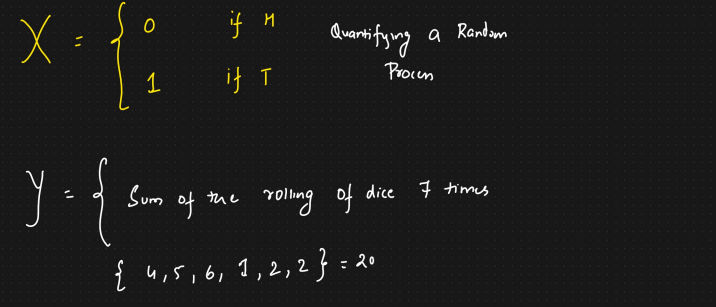 X = { 0 if H
1 if T
Quantifying a Random
Process
Y = { Sum of the rolling of dice 7 times
{ 4, 5, 6, 1, 2, 2 } = 20